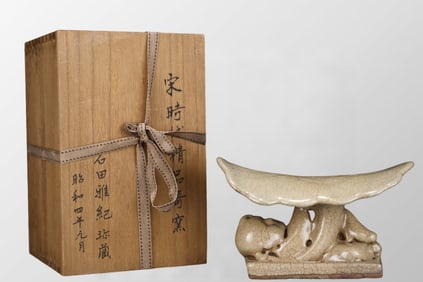 宋時代
窯
石田雅紀珍蔵
昭和四年九月